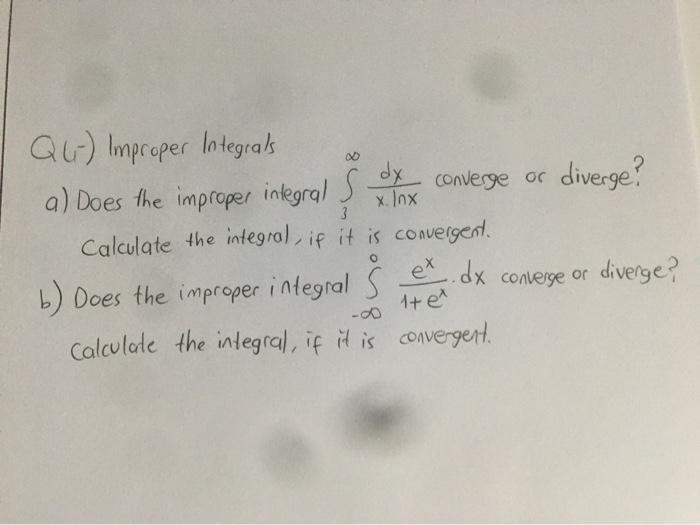 Q(1-) Improper Integrals
a) Does the improper integral ∫₃^∞ dx / (x.lnx) converge or diverge?
Calculate the integral, if it is convergent.
b) Does the improper integral ∫_-∞^0 e^x / (1+e^x) .dx converge or diverge?
Calculate the integral, if it is convergent.